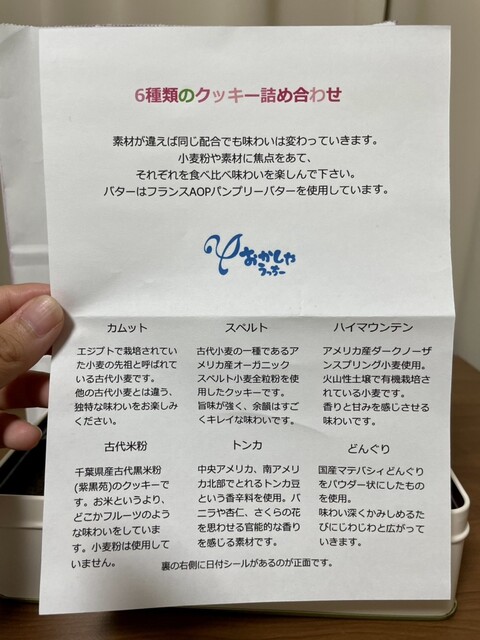 6種類のクッキー詰め合わせ
素材が違えば同じ配合でも味わいは変わっていきます。
小麦粉や素材に焦点をあて、
それぞれを食べ比べ味わいを楽しんで下さい。
バターはフランスAOPパンプリーバターを使用しています。
おかしやうっちー
カムット
エジプトで栽培されてい
た小麦の先祖と呼ばれて
いる古代小麦です。
他の古代小麦とは違う、
独特な味わいをお楽しみ
ください。
スペルト
古代小麦の一種であるア
メリカ産オーガニック
スペルト小麦全粒粉を使
用したクッキーです。
旨味が強く、余韻はすご
くキレイな味わいです。
ハイマウンテン
アメリカ産ダークノーザ
ンスプリング小麦使用。
火山性土壌で有機栽培さ
れている小麦です。
香りと甘みを感じさせる
味わいです。
古代米粉
千葉県産古代黒米粉
(紫黒苑)のクッキーで
す。お米というより、
どこかフルーツのよう
な味わいをしていま
す。小麦粉は使用して
いません。
トンカ
中央アメリカ、南アメリ
カ北部でとれるトンカ豆
という香辛料を使用。バ
ニラや杏仁、さくらの花
を思わせる官能的な香り
を感じる素材です。
どんぐり
国産マテバシイどんぐり
をパウダー状にしたもの
を使用。
味わい深くかみしめるた
びにじわじわと広がって
いきます。
裏の右側に日付シールがあるのが正面です。